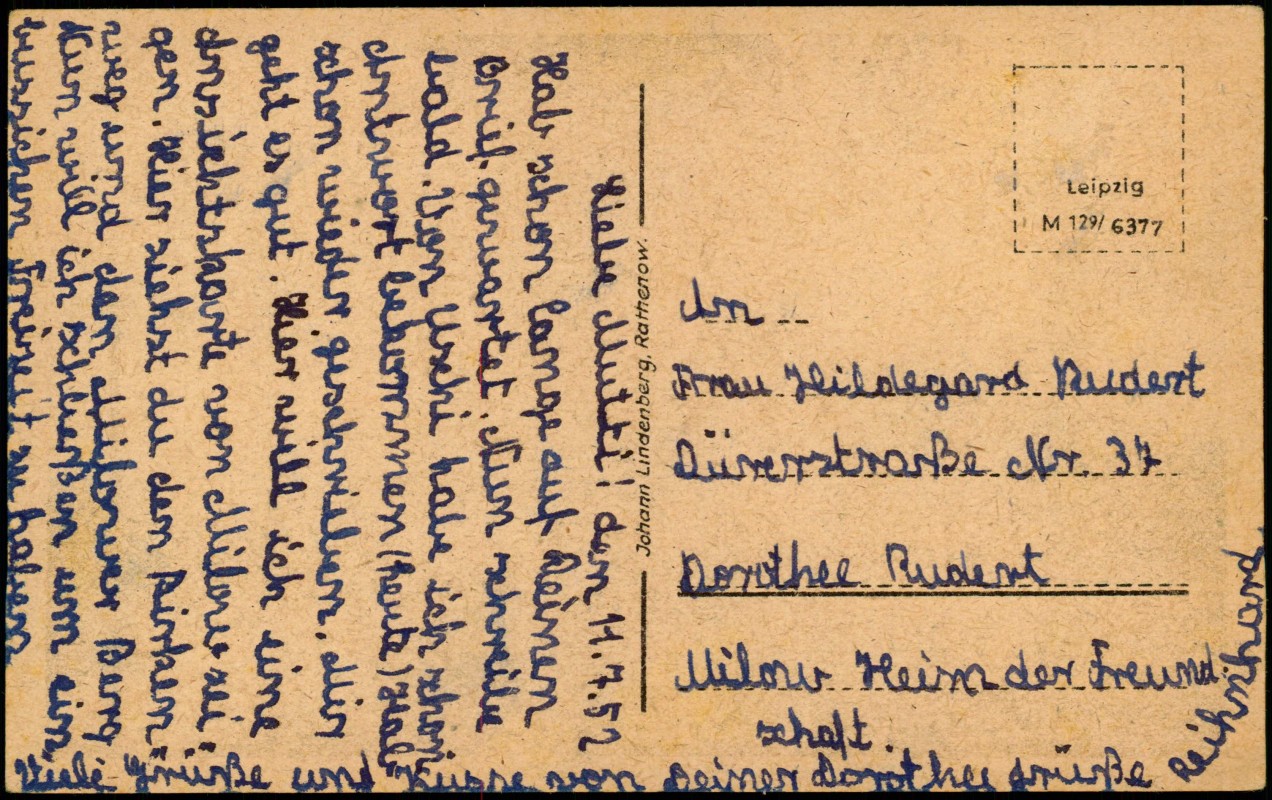 Liebe Mutti! den 11.7.52
Hab schon lange auf Deinen
Brief gewartet. Nun schreibe
bald. Von Uschi habe ich schon
Antwort bekommen (heute) Hab
schon wieder geschrieben. Mir
geht es gut. Hier will ich eine
Ansichtskarte von Milow zei=
gen. Hier siehst du den Birken=
weg und den Milower Berg
Nun will ich schließen um ein
zu haben.
Viele Grüße und Küsse von Deiner Dorothee Grüße
Reihnhard
Johann Lindenberg, Rathenow.
Leipzig
M 129/6377
An
Frau Hildegard Rudert
Dürerstraße Nr. 37
Dorothee Rudert
Milow Heim der Freund
schaft.